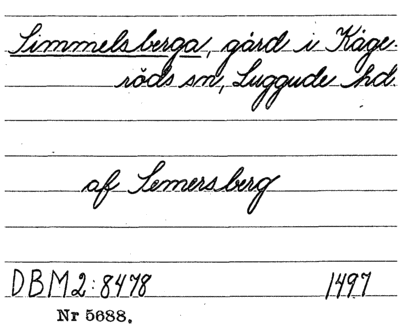 Simmelsberga, gård i Kåge-
röds sn, Luggude hd.
af Semersberg
DBM2:8478 1497
Nr 5688.